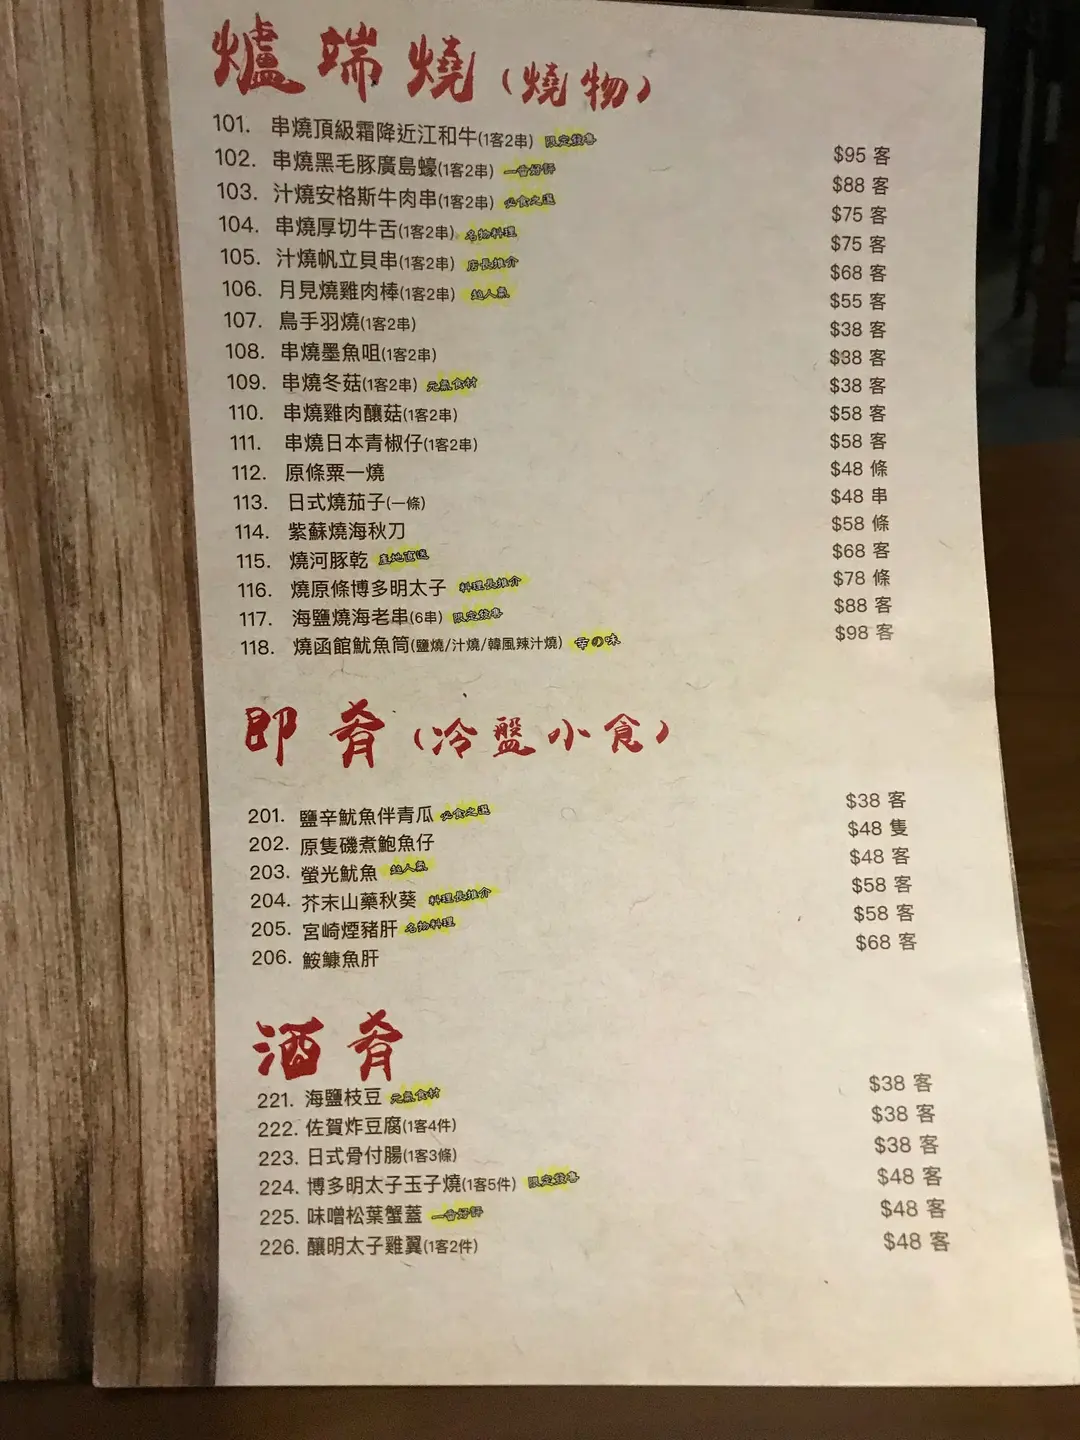 爐端燒(燒物)
101. 串燒頂級霜降近江和牛(1客2串) 限定發售 $95 客
102. 串燒黑毛豚廣島蠔(1客2串) 一番好評 $88 客
103. 汁燒安格斯牛肉串(1客2串) 必食之選 $75 客
104. 串燒厚切牛舌(1客2串) 名物料理 $75 客
105. 汁燒帆立貝串(1客2串) 店長推介 $68 客
106. 月見燒雞肉棒(1客2串) 超人氣 $55 客
107. 鳥手羽燒(1客2串) $38 客
108. 串燒墨魚咀(1客2串) $38 客
109. 串燒冬菇(1客2串) 元氣食材 $38 客
110. 串燒雞肉釀菇(1客2串) $58 客
111. 串燒日本青椒仔(1客2串) $58 客
112. 原條粟一燒 $48 條
113. 日式燒茄子(一條) $48 串
114. 紫蘇燒海秋刀 $58 條
115. 燒河豚乾 產地直送 $68 客
116. 燒原條博多明太子 料理長推介 $78 條
117. 海鹽燒海老串(6串) 限定發售 $88 客
118. 燒函館魷魚筒(鹽燒/汁燒/韓風辣汁燒) 幸の味 $98 客
即肴(冷盤小食)
201. 鹽辛魷魚伴青瓜 必食之選 $38 客
202. 原隻磯煮鮑魚仔 $48 隻
203. 螢光魷魚 超人氣 $48 客
204. 芥末山藥秋葵 料理長推介 $58 客
205. 宮崎煙豬肝 名物料理 $58 客
206. 鮟鱇魚肝 $68 客
酒肴
221. 海鹽枝豆 元氣食材 $38 客
222. 佐賀炸豆腐(1客4件) $38 客
223. 日式骨付腸(1客3條) $38 客
224. 博多明太子玉子燒(1客5件) 限定發售 $48 客
225. 味噌松葉蟹蓋 一番好評 $48 客
226. 釀明太子雞翼(1客2件) $48 客